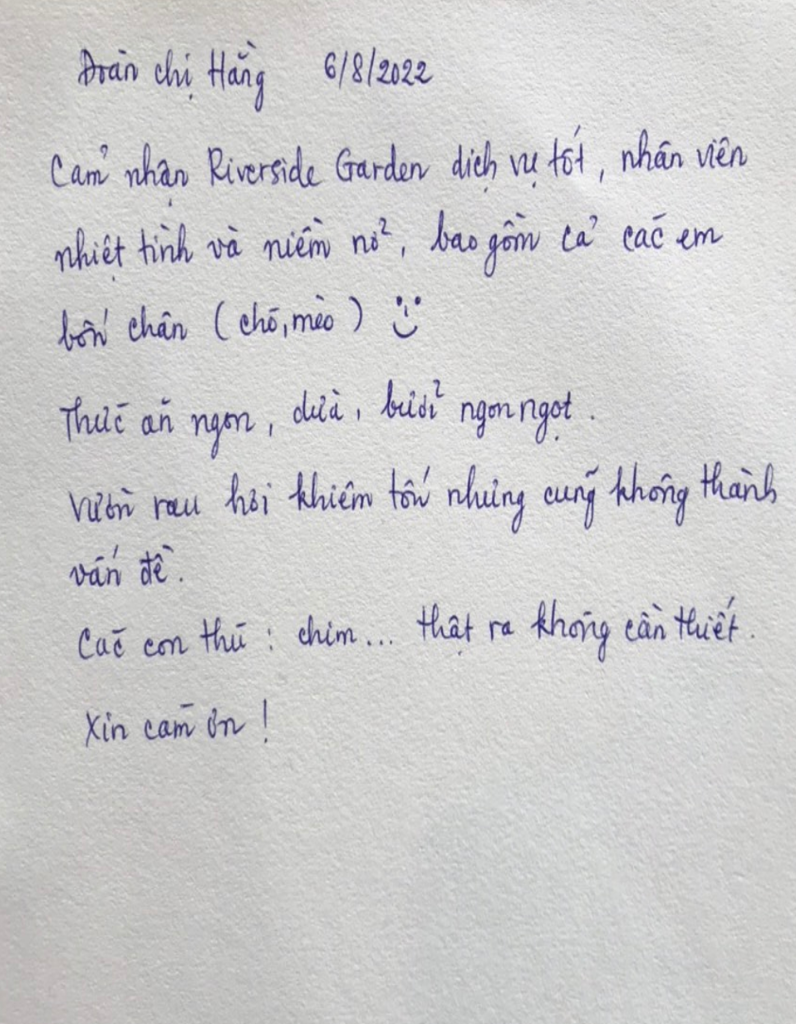 Đoàn chị Hằng 6/8/2022
Cảm nhận Riverside Garden dịch vụ tốt, nhân viên
nhiệt tình và niềm nở, bao gồm cả các em
bốn chân (chó, mèo) :)
Thức ăn ngon, dừa, bưởi ngon ngọt.
Vườn rau hơi khiêm tốn nhưng cũng không thành
vấn đề.
Các con thú : chim... thật ra không cần thiết.
Xin cảm ơn !